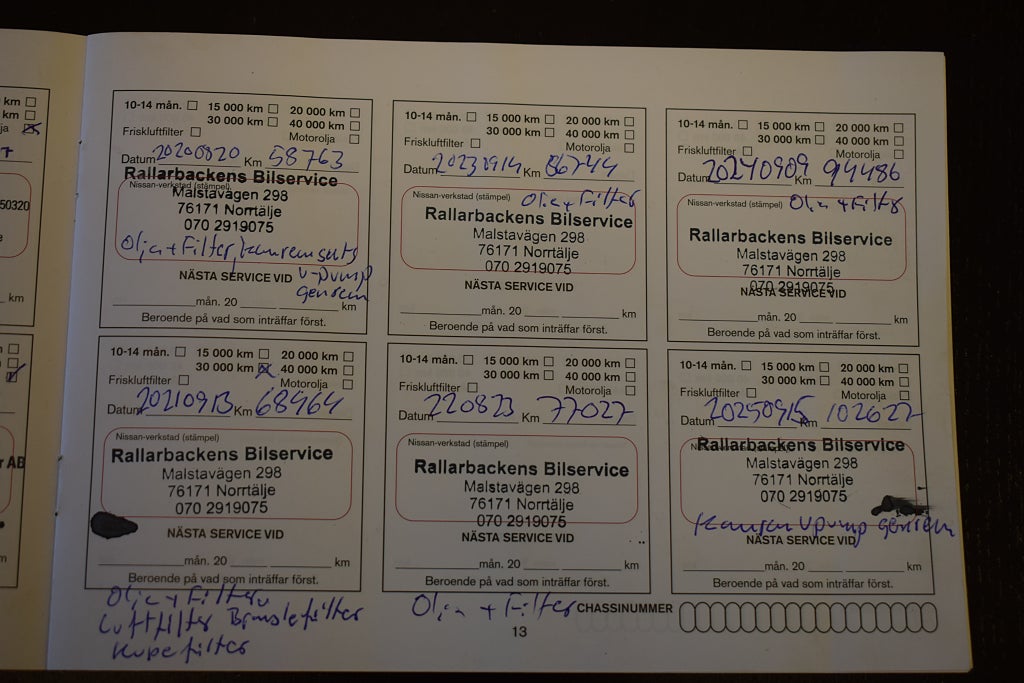 km
km
ja
7
50320
e
km
r AB
m
km
10-14 mån. 15 000 km 20 000 km
30 000 km 40 000 km
Friskluftfilter Motorolja
Datum 20200820 Km 58763
Rallarbackens Bilservice
Nissan-verkstad (stämpel)
Malstavägen 298
76171 Norrtälje
070 2919075
Olja + Filter, kamremsats
NÄSTA SERVICE VID V-pump
genrem
mån. 20 km
Beroende på vad som inträffar först.
10-14 mån. 15 000 km 20 000 km
30 000 km 40 000 km
Friskluftfilter Motorolja
Datum 20230914 Km 86744
Nissan-verkstad (stämpel) Olja + Filter
Rallarbackens Bilservice
Malstavägen 298
76171 Norrtälje
070 2919075
NÄSTA SERVICE VID
mån. 20 km
Beroende på vad som inträffar först.
10-14 mån. 15 000 km 20 000 km
30 000 km 40 000 km
Friskluftfilter Motorolja
Datum 20240909 Km 94486
Nissan-verkstad (stämpel) Olja + Filter
Rallarbackens Bilservice
Malstavägen 298
76171 Norrtälje
070 2919075
NÄSTA SERVICE VID
mån. 20 km
Beroende på vad som inträffar först.
10-14 mån. 15 000 km 20 000 km
30 000 km 40 000 km
Friskluftfilter Motorolja
Datum 20210913 Km 68964
Nissan-verkstad (stämpel)
Rallarbackens Bilservice
Malstavägen 298
76171 Norrtälje
070 2919075
NÄSTA SERVICE VID
mån. 20 km
Beroende på vad som inträffar först.
Olja + Filter
Luftfilter Bränslefilter
Kupefilter
10-14 mån. 15 000 km 20 000 km
30 000 km 40 000 km
Friskluftfilter Motorolja
Datum 220823 Km 77027
Nissan-verkstad (stämpel)
Rallarbackens Bilservice
Malstavägen 298
76171 Norrtälje
070 2919075
NÄSTA SERVICE VID
mån. 20 km
Beroende på vad som inträffar först.
Olja + Filter
10-14 mån. 15 000 km 20 000 km
30 000 km 40 000 km
Friskluftfilter Motorolja
Datum 20250915 Km 102627
Rallarbackens Bilservice
Nissan-verkstad (stämpel)
Malstavägen 298
76171 Norrtälje
070 2919075
Kamrem Vpump genrem
NÄSTA SERVICE VID
mån. 20 km
Beroende på vad som inträffar först.
CHASSINUMMER
13